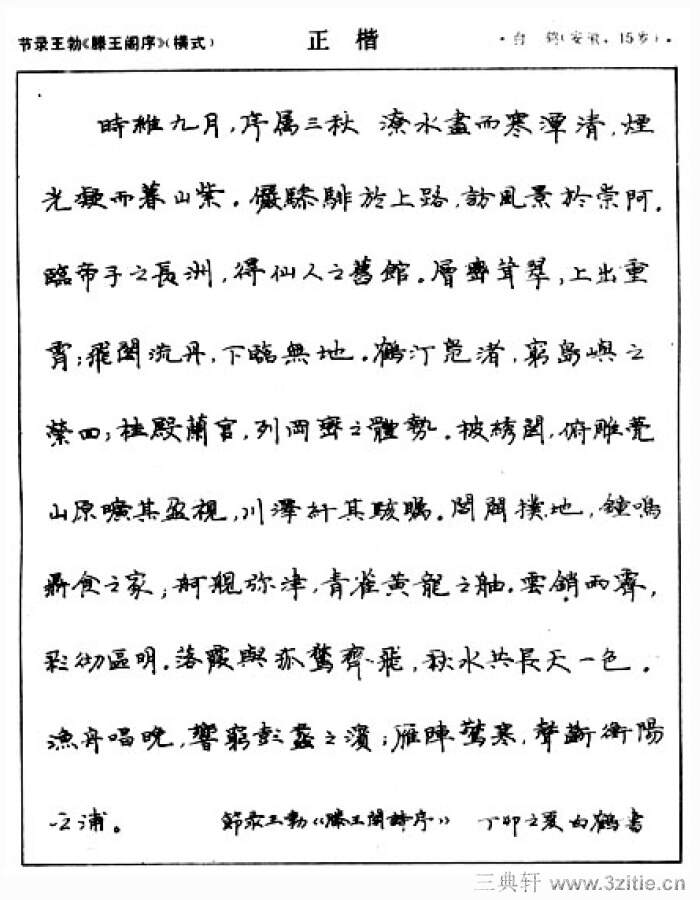 节录王勃《滕王阁序》(横式) 正楷 ·台 鹤(安徽,15岁)·
時維九月,序属三秋 潦水盡而寒潭清,煙
光凝而暮山紫。儼驂騑於上路,訪風景於崇阿。
臨帝子之長洲,得仙人之舊館。層巒聳翠,上出重
霄;飛閣流丹,下臨無地。鶴汀凫渚,窮島嶼之
縈回;桂殿蘭宫,列岡巒之體勢。披綉闥,俯雕甍
山原曠其盈視,川澤紆其駭矚。閭閻撲地,鐘鳴
鼎食之家;舸艦弥津,青雀黄龍之舳。雲銷雨霽,
彩彻區明。落霞與孤鶩齊飛,秋水共長天一色。
漁舟唱晚,響窮彭蠡之濱;雁陣驚寒,聲斷衡陽
之浦。 節录王勃《滕王閣詩序》 丁卯之夏 鶴書
三典轩 www.3zitie.cn